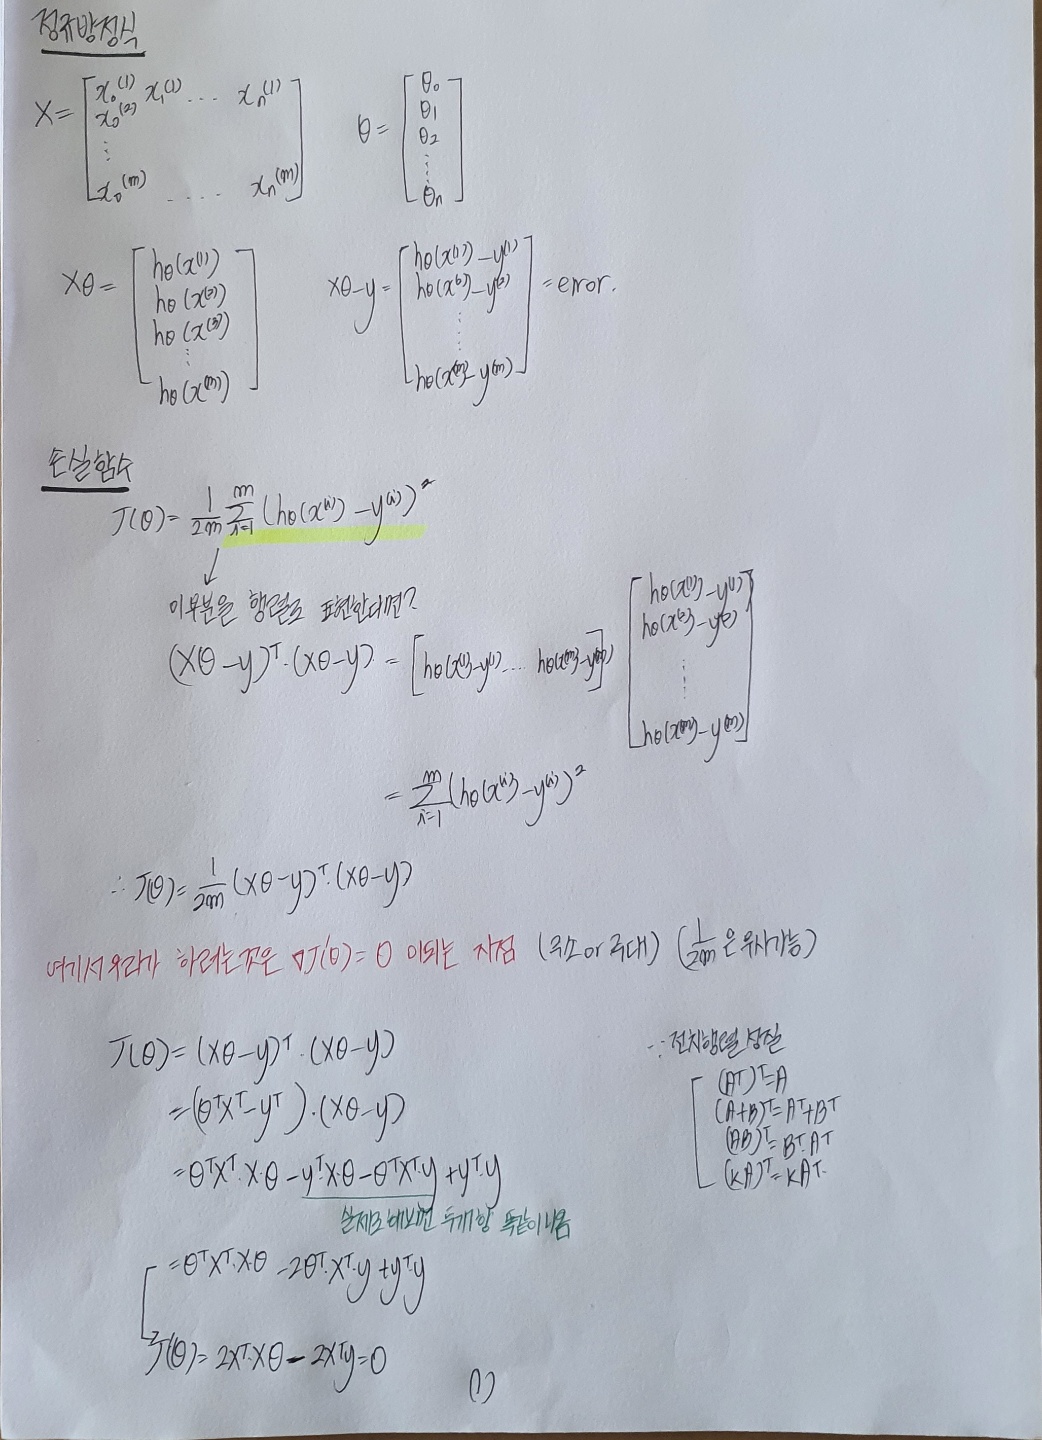 정규방정식
X = [ x₀⁽¹⁾ x₁⁽¹⁾ ... xₙ⁽¹⁾
x₀⁽²⁾
⋮
x₀⁽ᵐ⁾ .... xₙ⁽ᵐ⁾ ]
θ = [ θ₀
θ₁
θ₂
⋮
θₙ ]
Xθ = [ hθ(x⁽¹⁾)
hθ(x⁽²⁾)
hθ(x⁽³⁾)
⋮
hθ(x⁽ᵐ⁾) ]
Xθ-y = [ hθ(x⁽¹⁾) - y⁽¹⁾
hθ(x⁽²⁾) - y⁽²⁾
⋮
hθ(x⁽ᵐ⁾) - y⁽ᵐ⁾ ] = error.
손실함수
J(θ) = 1/2m Σᵢ₌₁ᵐ (hθ(x⁽ⁱ⁾) - y⁽ⁱ⁾)²
이부분을 행렬로 표현한다면?
(Xθ-y)ᵀ·(Xθ-y) = [hθ(x⁽¹⁾)-y⁽¹⁾ ... hθ(x⁽ᵐ⁾)-y⁽ᵐ⁾] [ hθ(x⁽¹⁾) - y⁽¹⁾
hθ(x⁽²⁾) - y⁽²⁾
⋮
hθ(x⁽ᵐ⁾) - y⁽ᵐ⁾ ]
= Σᵢ₌₁ᵐ (hθ(x⁽ⁱ⁾) - y⁽ⁱ⁾)²
∴ J(θ) = 1/2m (Xθ-y)ᵀ·(Xθ-y)
여기서 우리가 하려는것은 ∇J(θ) = 0 이되는 지점 (극소 or 극대) (1/2m은 무시가능)
J(θ) = (Xθ-y)ᵀ·(Xθ-y)
= (θᵀXᵀ-yᵀ)·(Xθ-y)
= θᵀXᵀ·X·θ - yᵀ·X·θ - θᵀXᵀ·y + yᵀ·y
실제로 해보면 두개항 똑같이나옴
= θᵀXᵀ·X·θ - 2θᵀ·Xᵀ·y + yᵀy
J(θ) = 2Xᵀ·Xθ - 2Xᵀy = 0
∵ 전치행렬 성질
(Aᵀ)ᵀ = A
(A+B)ᵀ = Aᵀ+Bᵀ
(AB)ᵀ = Bᵀ·Aᵀ
(kA)ᵀ = kAᵀ.
(1)